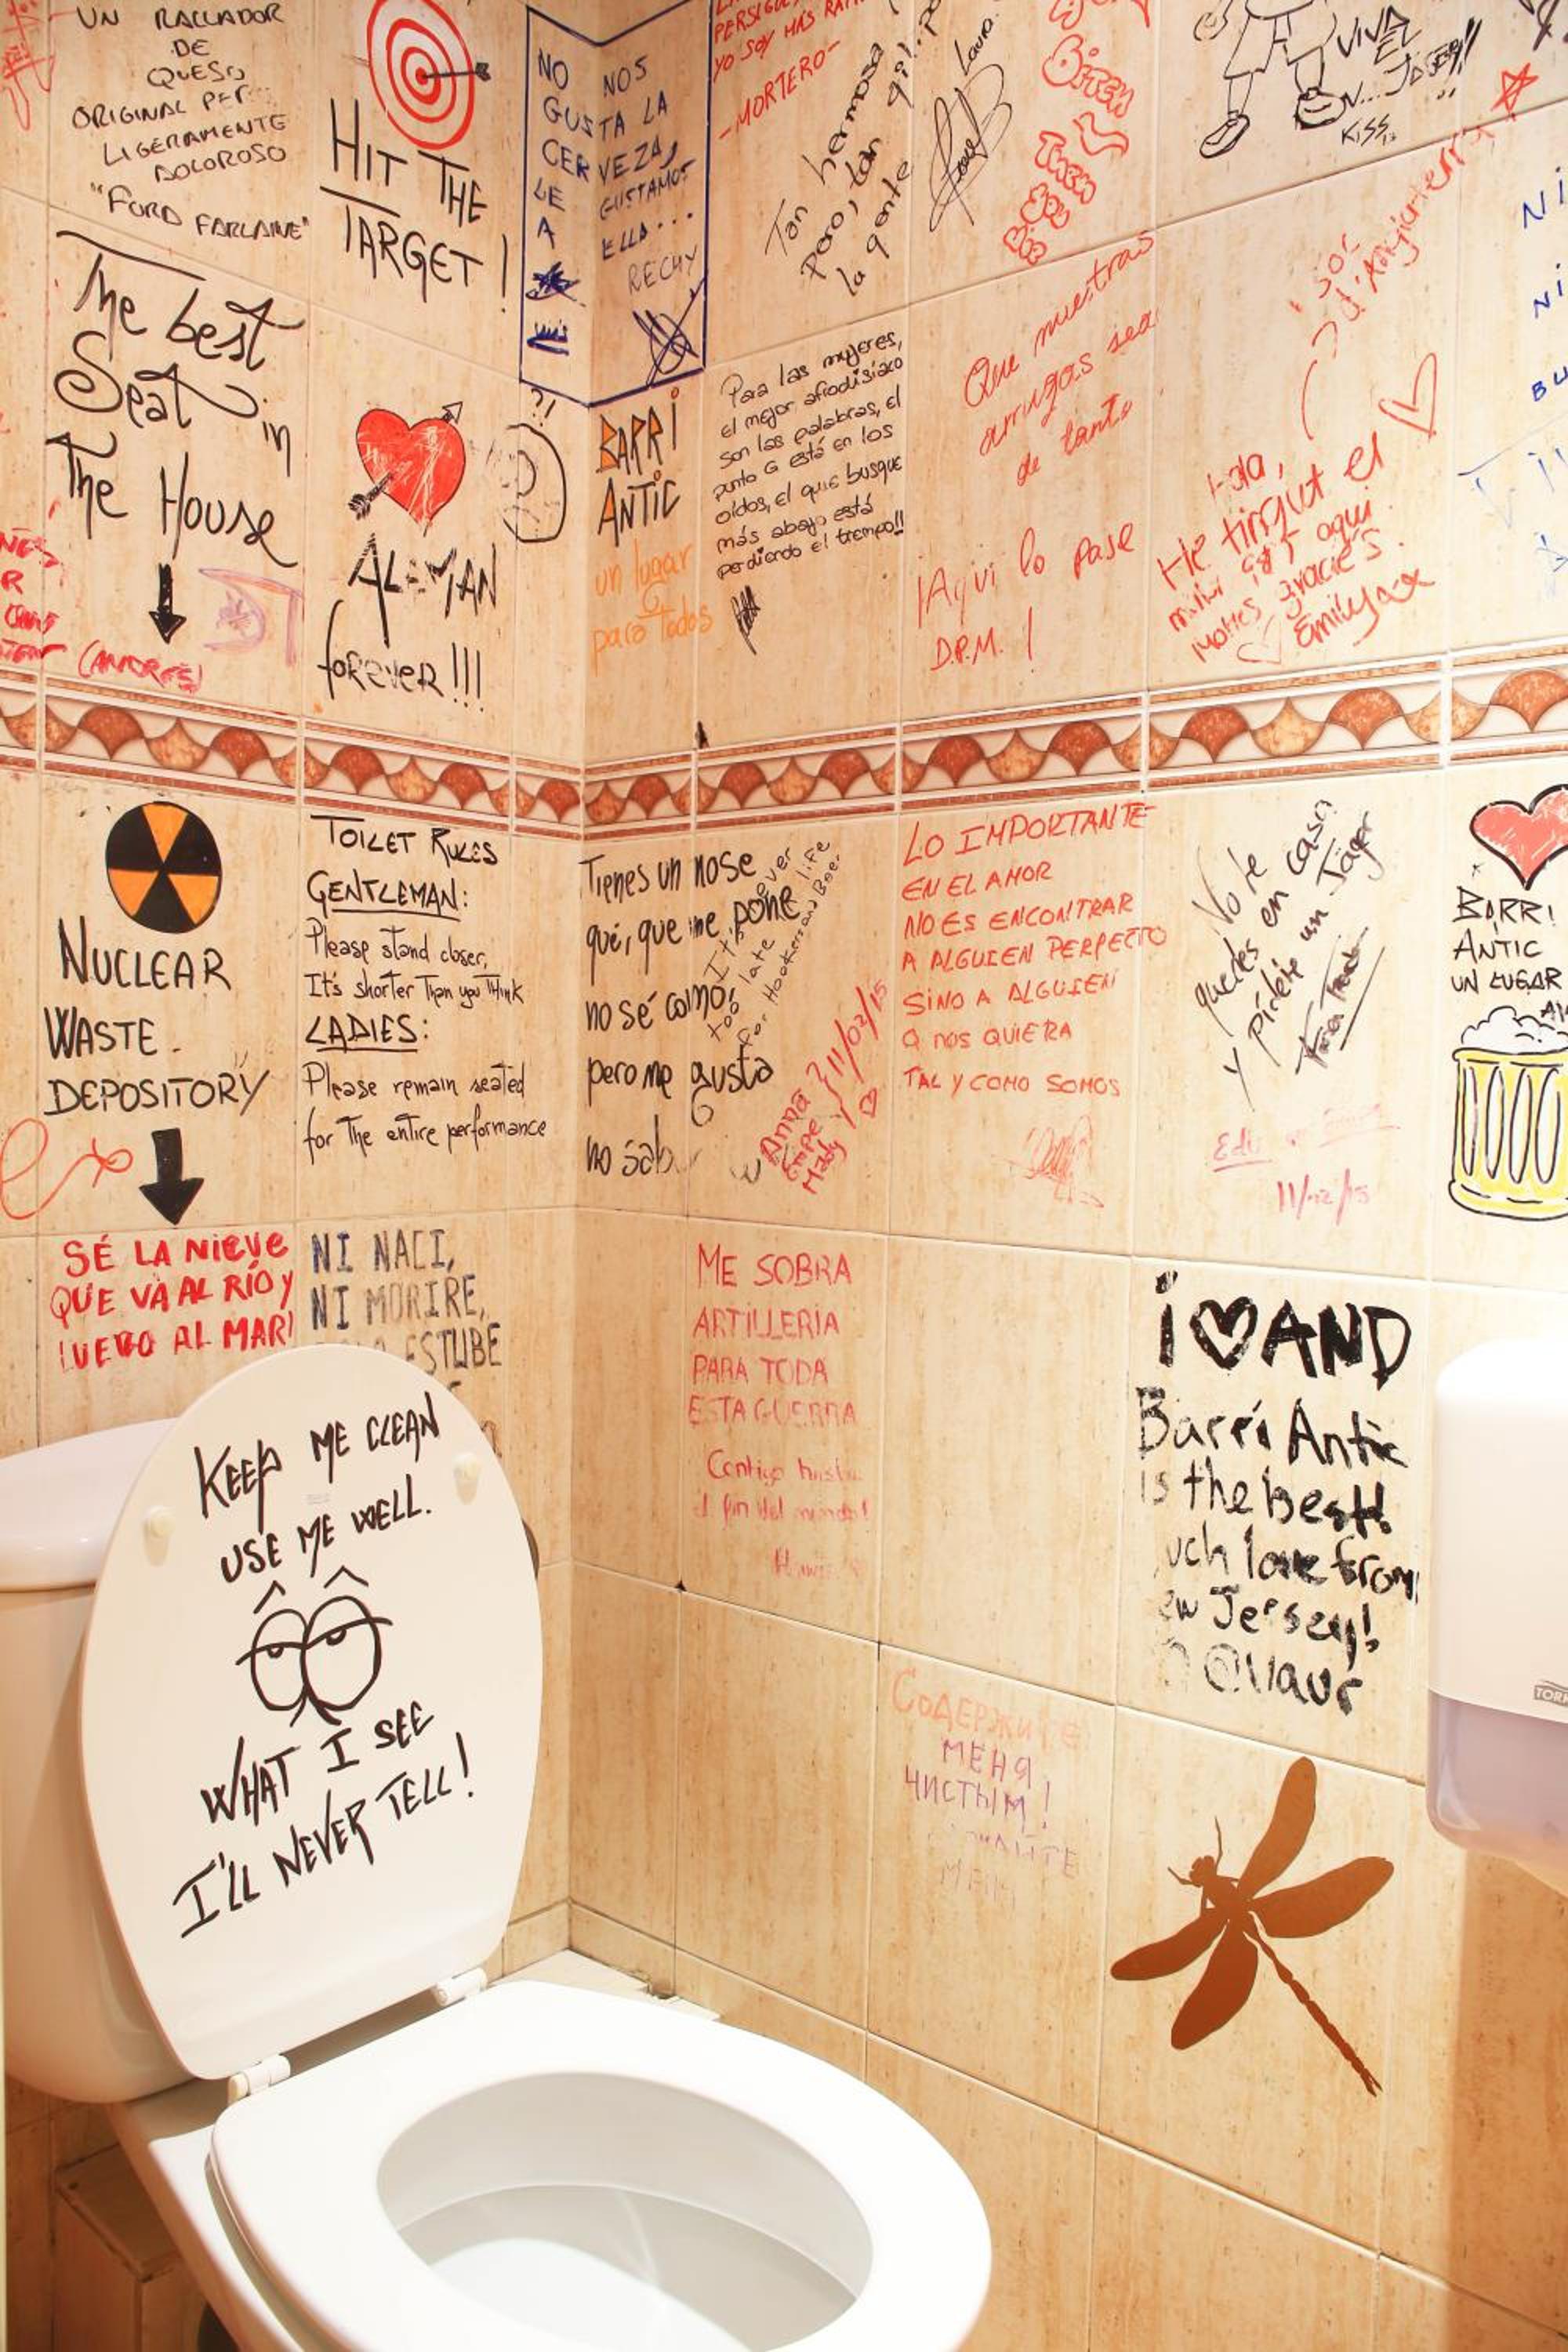 UN RALLADOR
DE
QUESO
ORIGINAL PER
LIGERAMENTE
DOLOROSO
"FORD FARLAINE"
HIT THE
TARGET !
NO NOS
GUSTA LA
CERVEZA,
LE GUSTAMOS
A ELLA...
RECHY
YO SOY MÁS
-MORTERO-
Tan hermosa
pero, tan
la gente
Laura
VIVA
EL
KISS
The best
Seat in
The House
(AMORES)
ALEMAN
forever!!!
BARRI
ANTIC
un lugar
para Todos
Para las mujeres,
el mejor afrodisíaco
son las palabras, el
punto G está en los
oídos, el que busque
más abajo está
perdiendo el tiempo!!
Que nuestras
arrugas sea
de tanto
¡Aquí lo pase
D.P.M. !
Hola,
He tingut el
millor aquí
moltes gracies.
Emily xx
NUCLEAR
WASTE
DEPOSITORY
TOILET RULES
GENTLEMAN:
Please stand closer,
It's shorter Than you Think
LADIES:
Please remain seated
for The entire performance
Tienes un nose
qué, que me pone
no sé como,
pero me gusta
no sab
It's never
too late life
for Hookers and Beer
Anna
Empe
Mady
11/02/15
LO IMPORTANTE
EN EL AMOR
NO ES ENCONTRAR
A ALGUIEN PERPECTO
SINO A ALGUIEN
Q NOS QUIERA
TAL Y COMO SOMOS
No te
quedes en casa
y pídete un Jäger
BARRI
ANTIC
UN LUGAR
SÉ LA NIEVE
QUE VA AL RÍO Y
LUEGO AL MAR!
NI NACI,
NI MORIRE,
ESTUBE
ME SOBRA
ARTILLERIA
PARA TODA
ESTA GUERRA
Contigo hasta
el fin del mundo!
i♡AND
Barri Antic
is the best!!
uch love from
ew Jersey!
KEEP ME CLEAN
USE ME WELL.
WHAT I SEE
I'LL NEVER TELL!
СОДЕРЖИТЕ
МЕНЯ
ЧИСТЫМ!
МЕНЯ
TORK